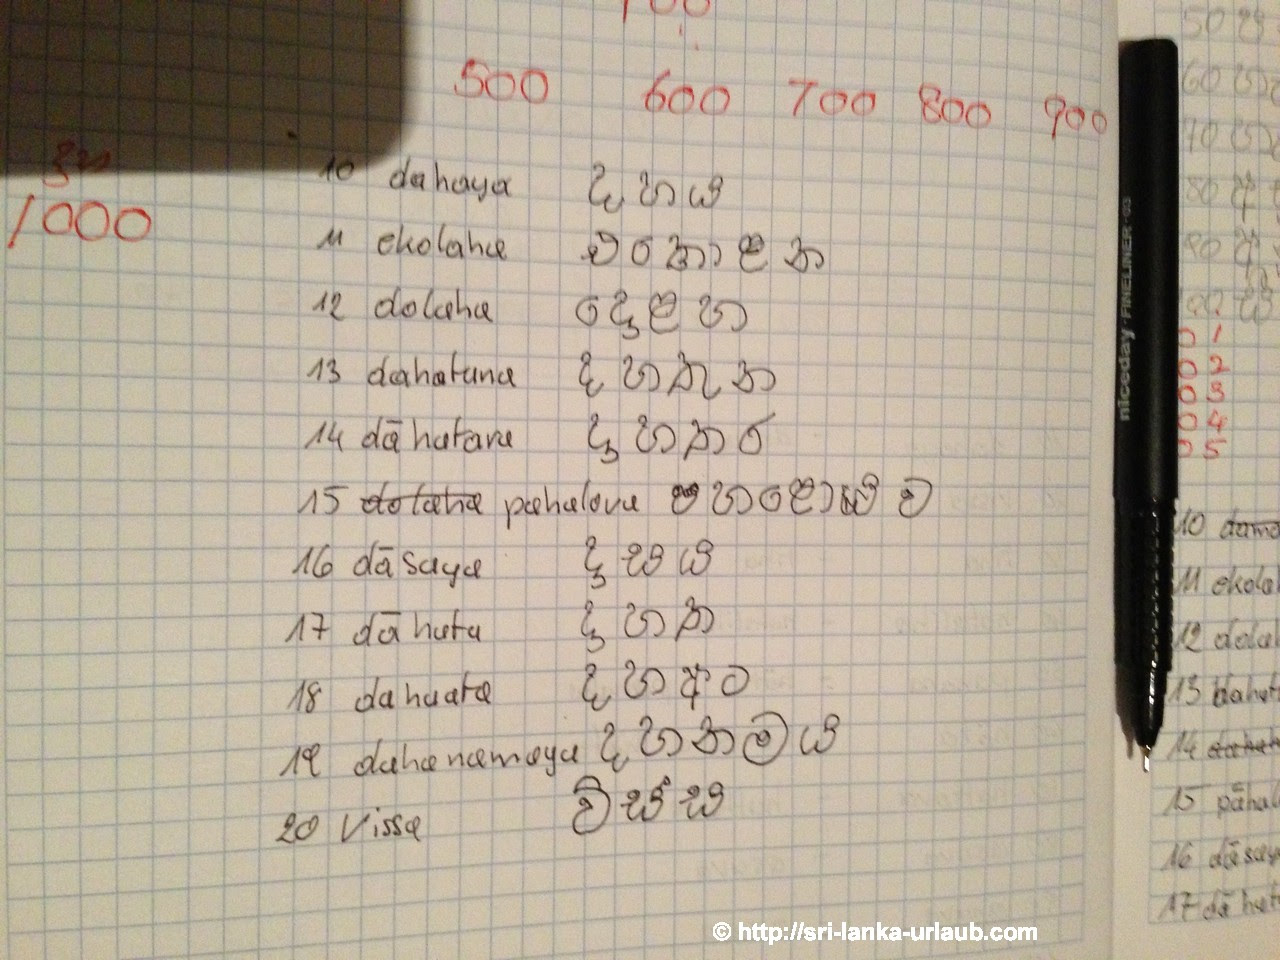 100
500 600 700 800 900
1000
10 dahaya දහය
11 ekolaha එකොළහ
12 dolaha දොළහ
13 dahatuna දහතුන
14 dāhatara දාහතර
15 dolaha pahalova පහලොව
16 dāsaya දාසය
17 dāhata දාහත
18 dahaata දහඅට
19 dahanamaya දහනමය
20 Vissa විස්ස
niceday FINELINER 03
50
60
70
80
90
100
01
02
03
04
05
10
11 ekola
12 dola
13 dahat
14
15 pahal
16 dāsay
17 dāhat
© http://sri-lanka-urlaub.com